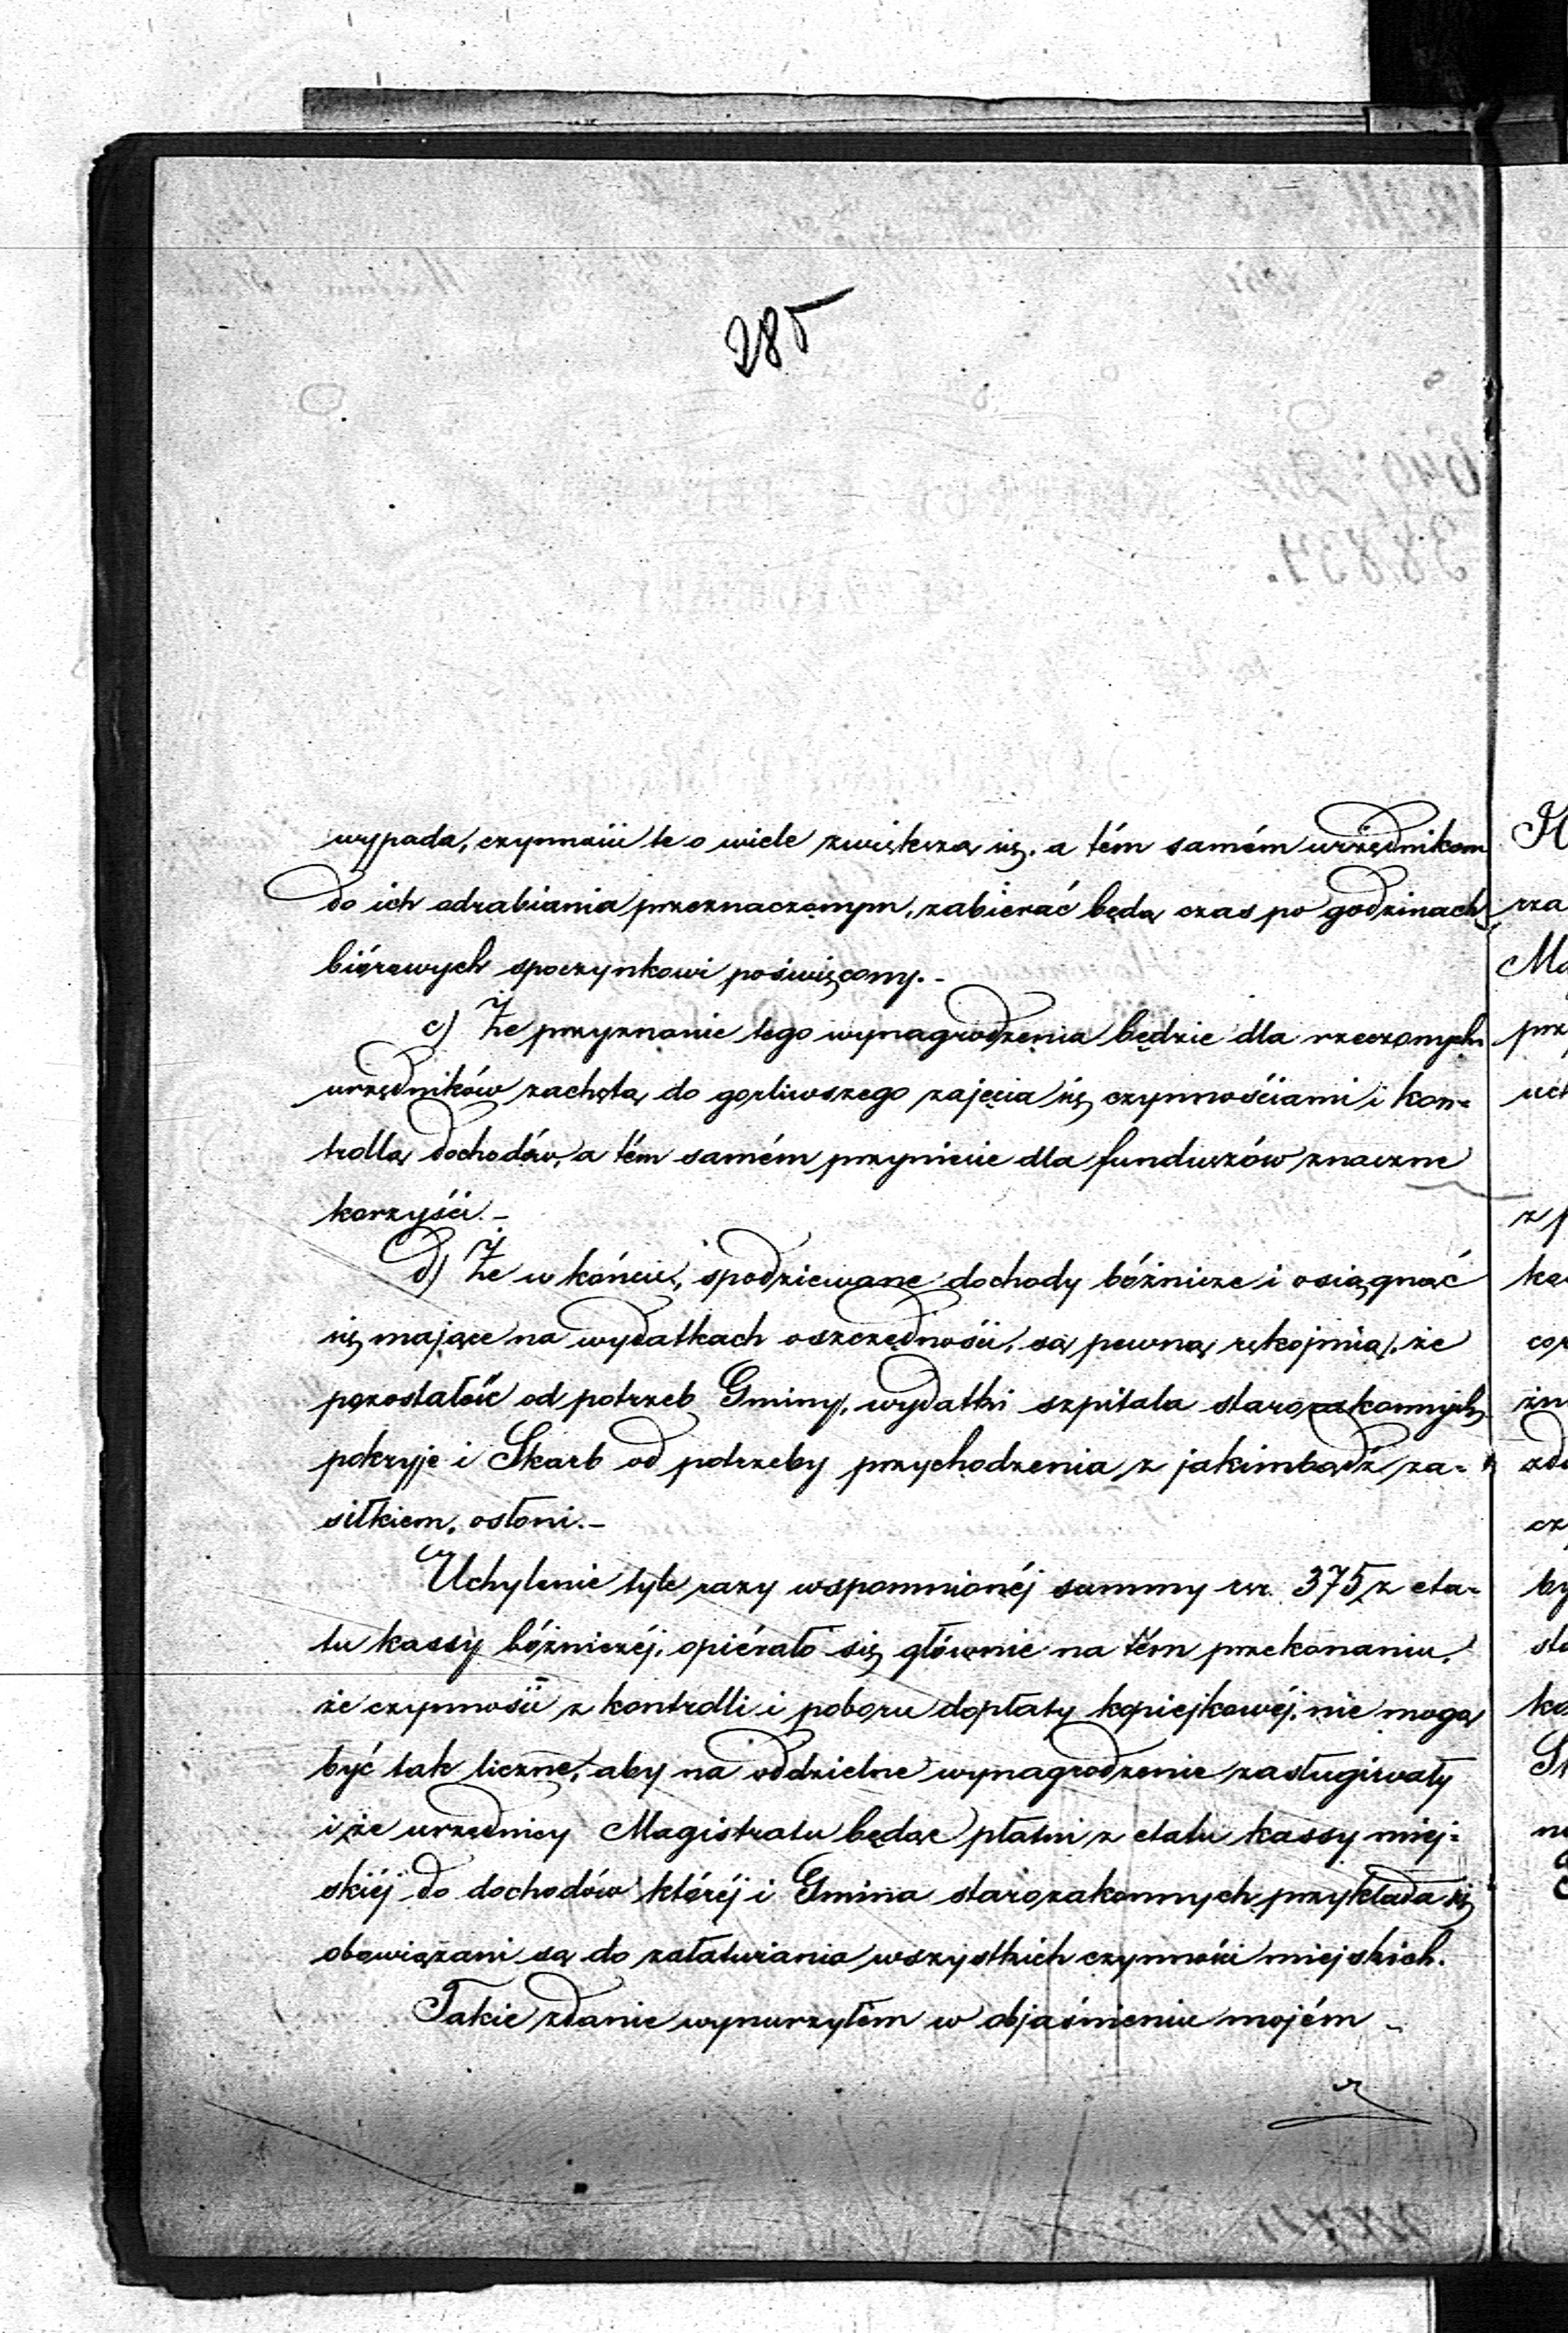 285
wypada, czynności te o wiele zwiększą się, a tém samém urzędnikom
do ich odrabiania przeznaczonym, zabierać będą czas po godzinach
biórowych spoczynkowi poświęcony.-
c) Że przyznanie tego wynagrodzenia będzie dla rzeczonych
urzędników zachętą do gorliwszego zajęcia się czynnościami i kon-
trollą dochodów, a tém samém przyniesie dla funduszów znaczne
korzyści.-
d) Że w końcu, spodziewane dochody bóżnicze i osiągnąć
się mające na wydatkach oszczędności, są pewną rękojmią, że
pozostałość od potrzeb Gminy, wydatki szpitala starozakonnych
pokryje i Skarb od potrzeby przychodzenia z jakimbądź za-
siłkiem, osłoni.-
Uchylenie tyle razy wspomnionéj summy rsr. 375 z eta-
tu kassy bóżniczéj, opiérało się głównie na tém przekonaniu,
że czynności z kontrolli i poboru dopłaty kopiejkowéj, nie mogą
być tak liczne, aby na oddzielne wynagrodzenie zasługiwały
i że urzędnicy Magistratu będąc płatni z etatu kassy miej-
skiéj do dochodów któréj i Gmina starozakonnych przykłada się
obowiązani są do załatwiania wszystkich czynności miejskich.
Takie zdanie wynurzyłem w objaśnieniu mojém -